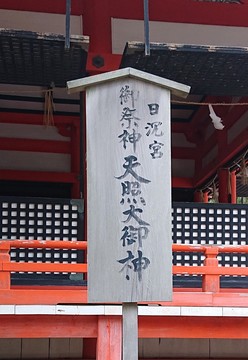 日沉宮
御祭神 天照大御神